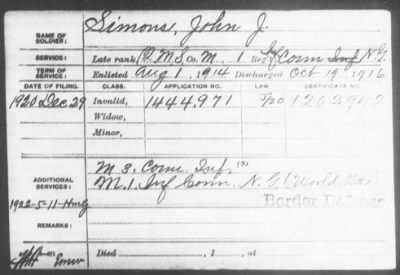 NAME OF SOLDIER: Simons, John J.
SERVICE: Late rank, Q.M.S. Co. M, 1 Reg't Conn Inf N.G.
TERM OF SERVICE: Enlisted Aug 1, 1914 Discharged Oct 19, 1916
DATE OF FILING. CLASS. APPLICATION NO. LAW. CERTIFICATE NO.
1920 Dec 29 Invalid, 1444,971
Widow,
Minor,
ADDITIONAL SERVICES: M 3. Conn. Inf.
M. 1. Inf Conn. N. G. (World War)
1922-5-11-
Border Defense
REMARKS:
Died , 1 , at